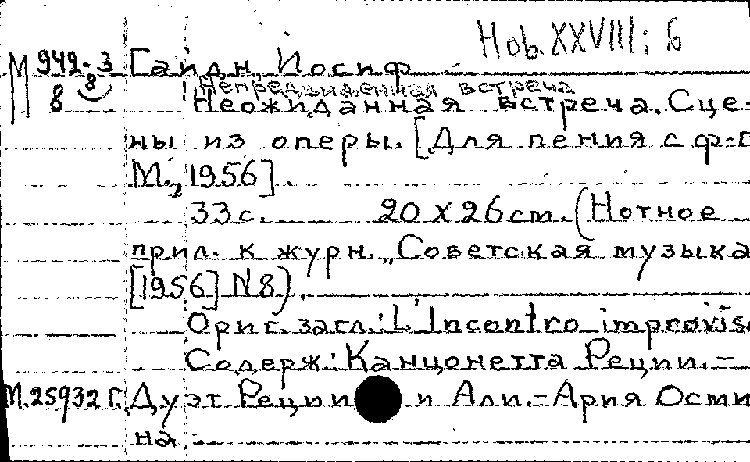 Hob. XXVIII: 6
М 949-3 Гайдн, Иосиф
8
8
Непредвиденная встреча
Неожиданная встреча. Сце-
ны из оперы. [Для пения с ф-п
М., 1956].
33 с. 20 x 26 cm. (Нотное
прил. к журн. „Советская музыка
[1956] N 8).
Ориг. загл.: L'Incontro improvis
Содерж.: Канцонетта Реции. –
М. 25932 Г. Дуэт Реции и Али. – Ария Осми
на. –